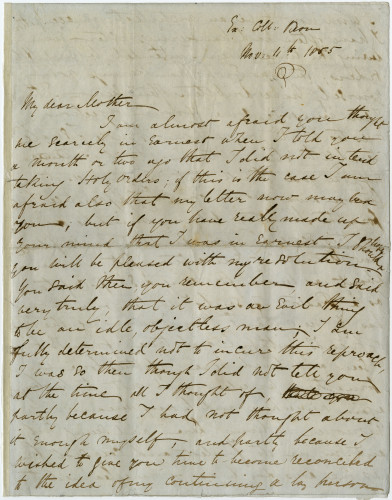 Ex: Coll: Oxon
Nov: 11th 1855
My dear Mother
I am almost afraid you thought
me scarcely in Earnest when I told you
a month or two ago that I did not intend
taking Holy Orders; if this is the case I am
afraid also that my letter now may vex
you; but if you have really made up
your mind that I was in Earnest I
you will be pleased with my resolution
You said then you remember and said
very truly, that it was an Evil thing
to be an idle, objectless man; I am
fully determined not to incur this reproach,
I was so then though I did not tell you
at the time all I thought of
partly because I had not thought about
it Enough myself, and partly because I
wished to give you time to become reconciled
to the idea of my continuing a lay person